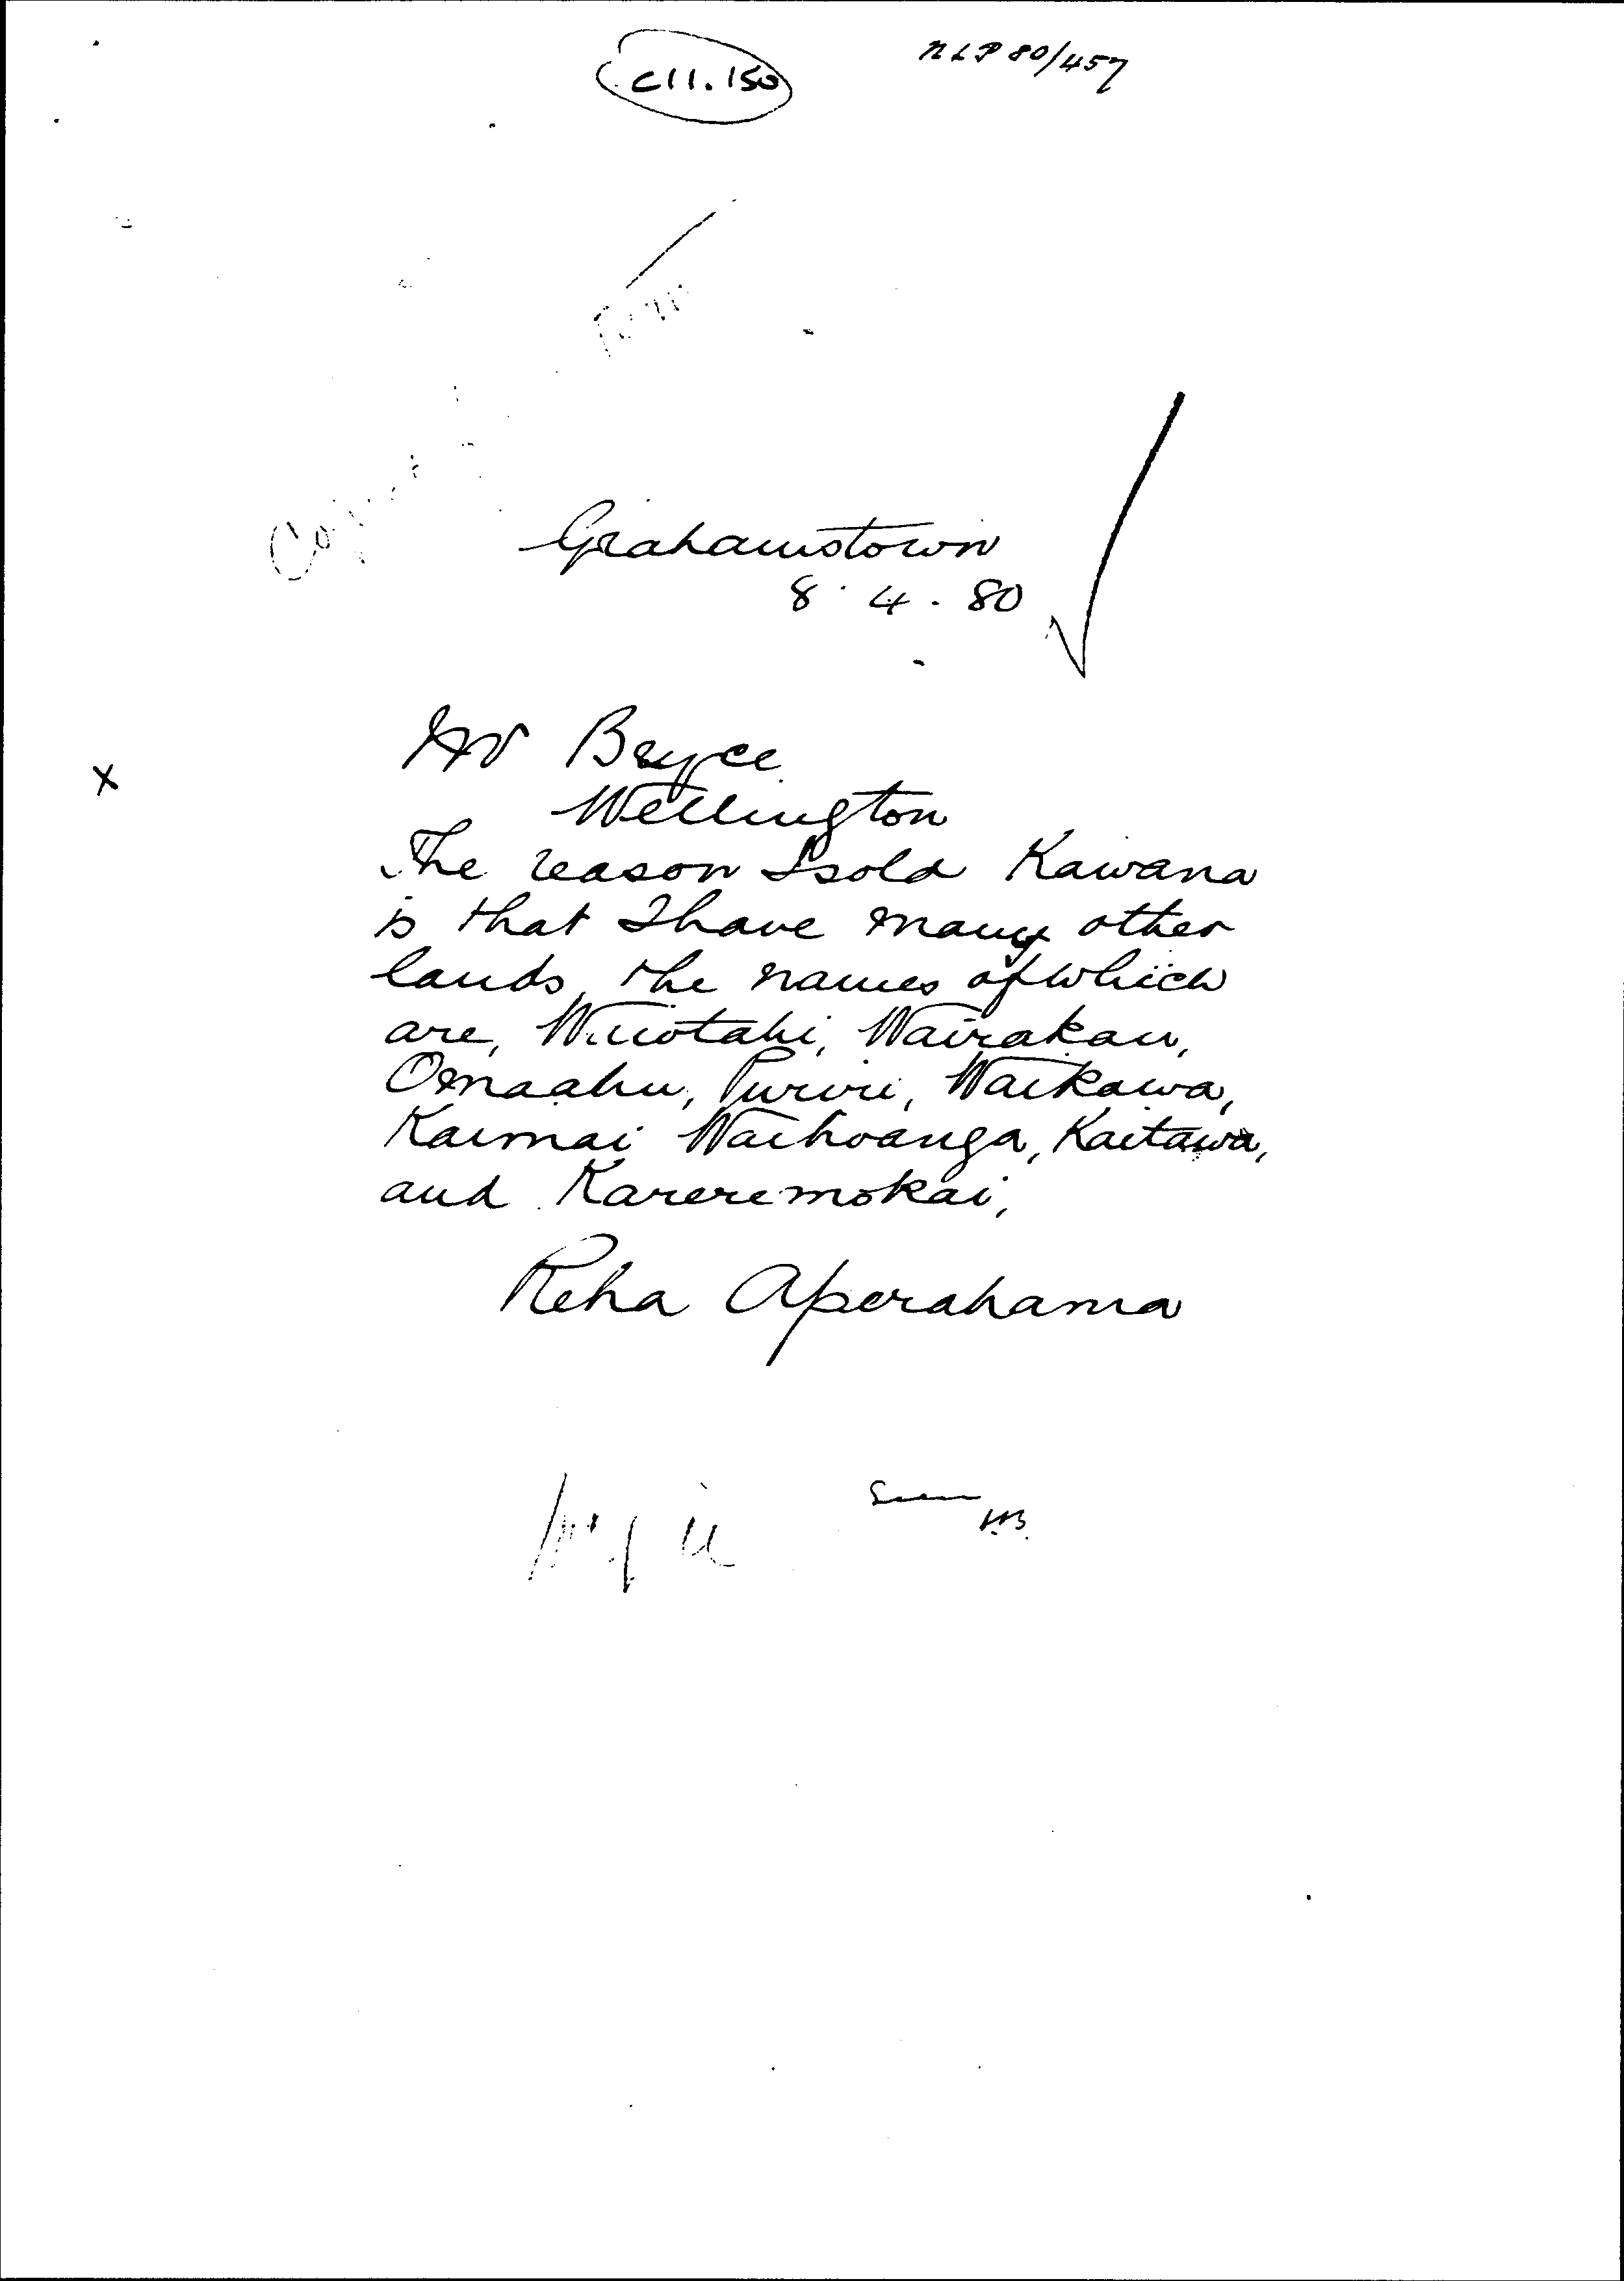 C11.150
NLP 80/457
Grahamstown
8.4.80
Mr Bryce
Wellington
The reason I sold Kawana
is that I have many other
lands, the names of which
are, Waiotahi, Wairakau,
Omaahu, Puriri, Waikawa,
Kaimai Waihoanga, Kaitawa,
and Kareremokai,
Reha Aperahama
Seen